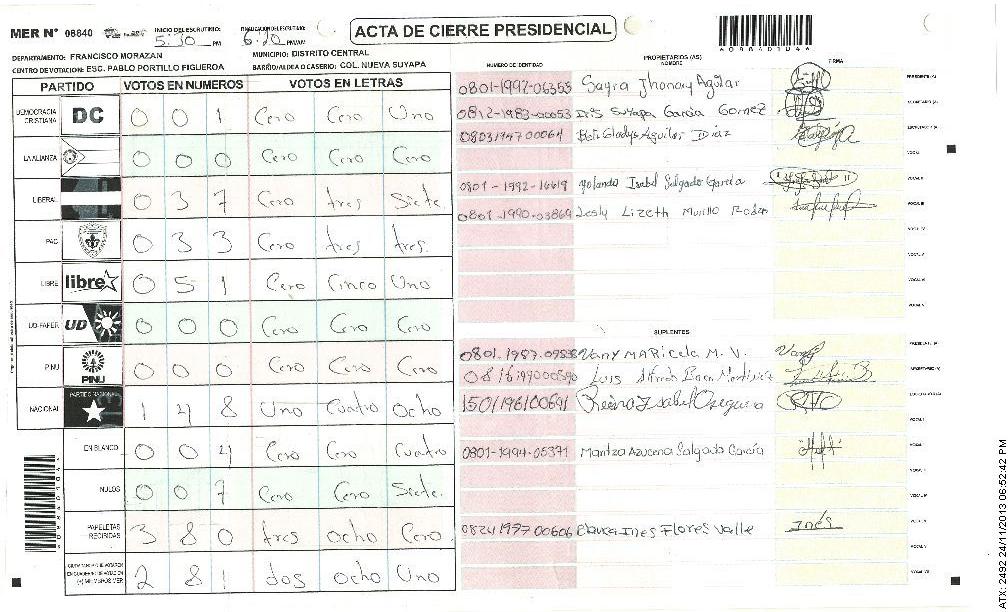 MER N° 08840 INICIO DEL ESCRUTINIO: 5:30 PM FINALIZACION DEL ESCRUTINIO: 6:20 PM/AM ACTA DE CIERRE PRESIDENCIAL
DEPARTAMENTO: FRANCISCO MORAZAN MUNICIPIO: DISTRITO CENTRAL
CENTRO DE VOTACION: ESC. PABLO PORTILLO FIGUEROA BARRIO/ALDEA O CASERIO: COL. NUEVA SUYAPA
PARTIDO VOTOS EN NUMEROS VOTOS EN LETRAS
DEMOCRACIA CRISTIANA DC 0 0 1 Cero Cero Uno
LA ALIANZA 0 0 0 Cero Cero Cero
LIBERAL 0 3 7 Cero tres Siete
PAC 0 3 3 Cero tres tres
LIBRE libre 0 5 1 Cero Cinco Uno
UD-FAPER UD 0 0 0 Cero Cero Cero
PINU PINU 0 0 0 Cero Cero Cero
NACIONAL PARTIDO NACIONAL 1 4 8 Uno Cuatro Ocho
EN BLANCO 0 0 4 Cero Cero Cuatro
NULOS 0 0 7 Cero Cero Siete
PAPELETAS RECIBIDAS 3 8 0 tres ocho Cero
2 8 1 dos ocho Uno
NUMERO DE IDENTIDAD PROPIETARIOS (AS) NOMBRE FIRMA
0801-1992-06353 Sayra Jhonary Aguilar PRESIDENTE (A)
0812-1983-00053 Iris Suyapa Garcia Gomez SECRETARIO (A)
0803194700064 Gladys Aguilar Diaz ESCRUTADOR (A)
0801-1992-16619 Yolanda Isabel Salgado Garcia
0801-1990-03869 Lesly Lizeth Murillo
SUPLENTES
Vany MARicela M. V. Vany
Luis
1501196100691 Reina Isabel Oseguera
0801-1994-05371 Maritza Azucena Salgado Garcia
0824197700606 Ines Flores Valle Inés
ATX: 2492 24/11/2013 06:52:42 PM